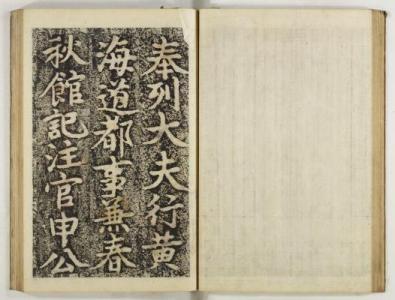 奉列大夫行黄
海道都事兼春
秋館記注官申公